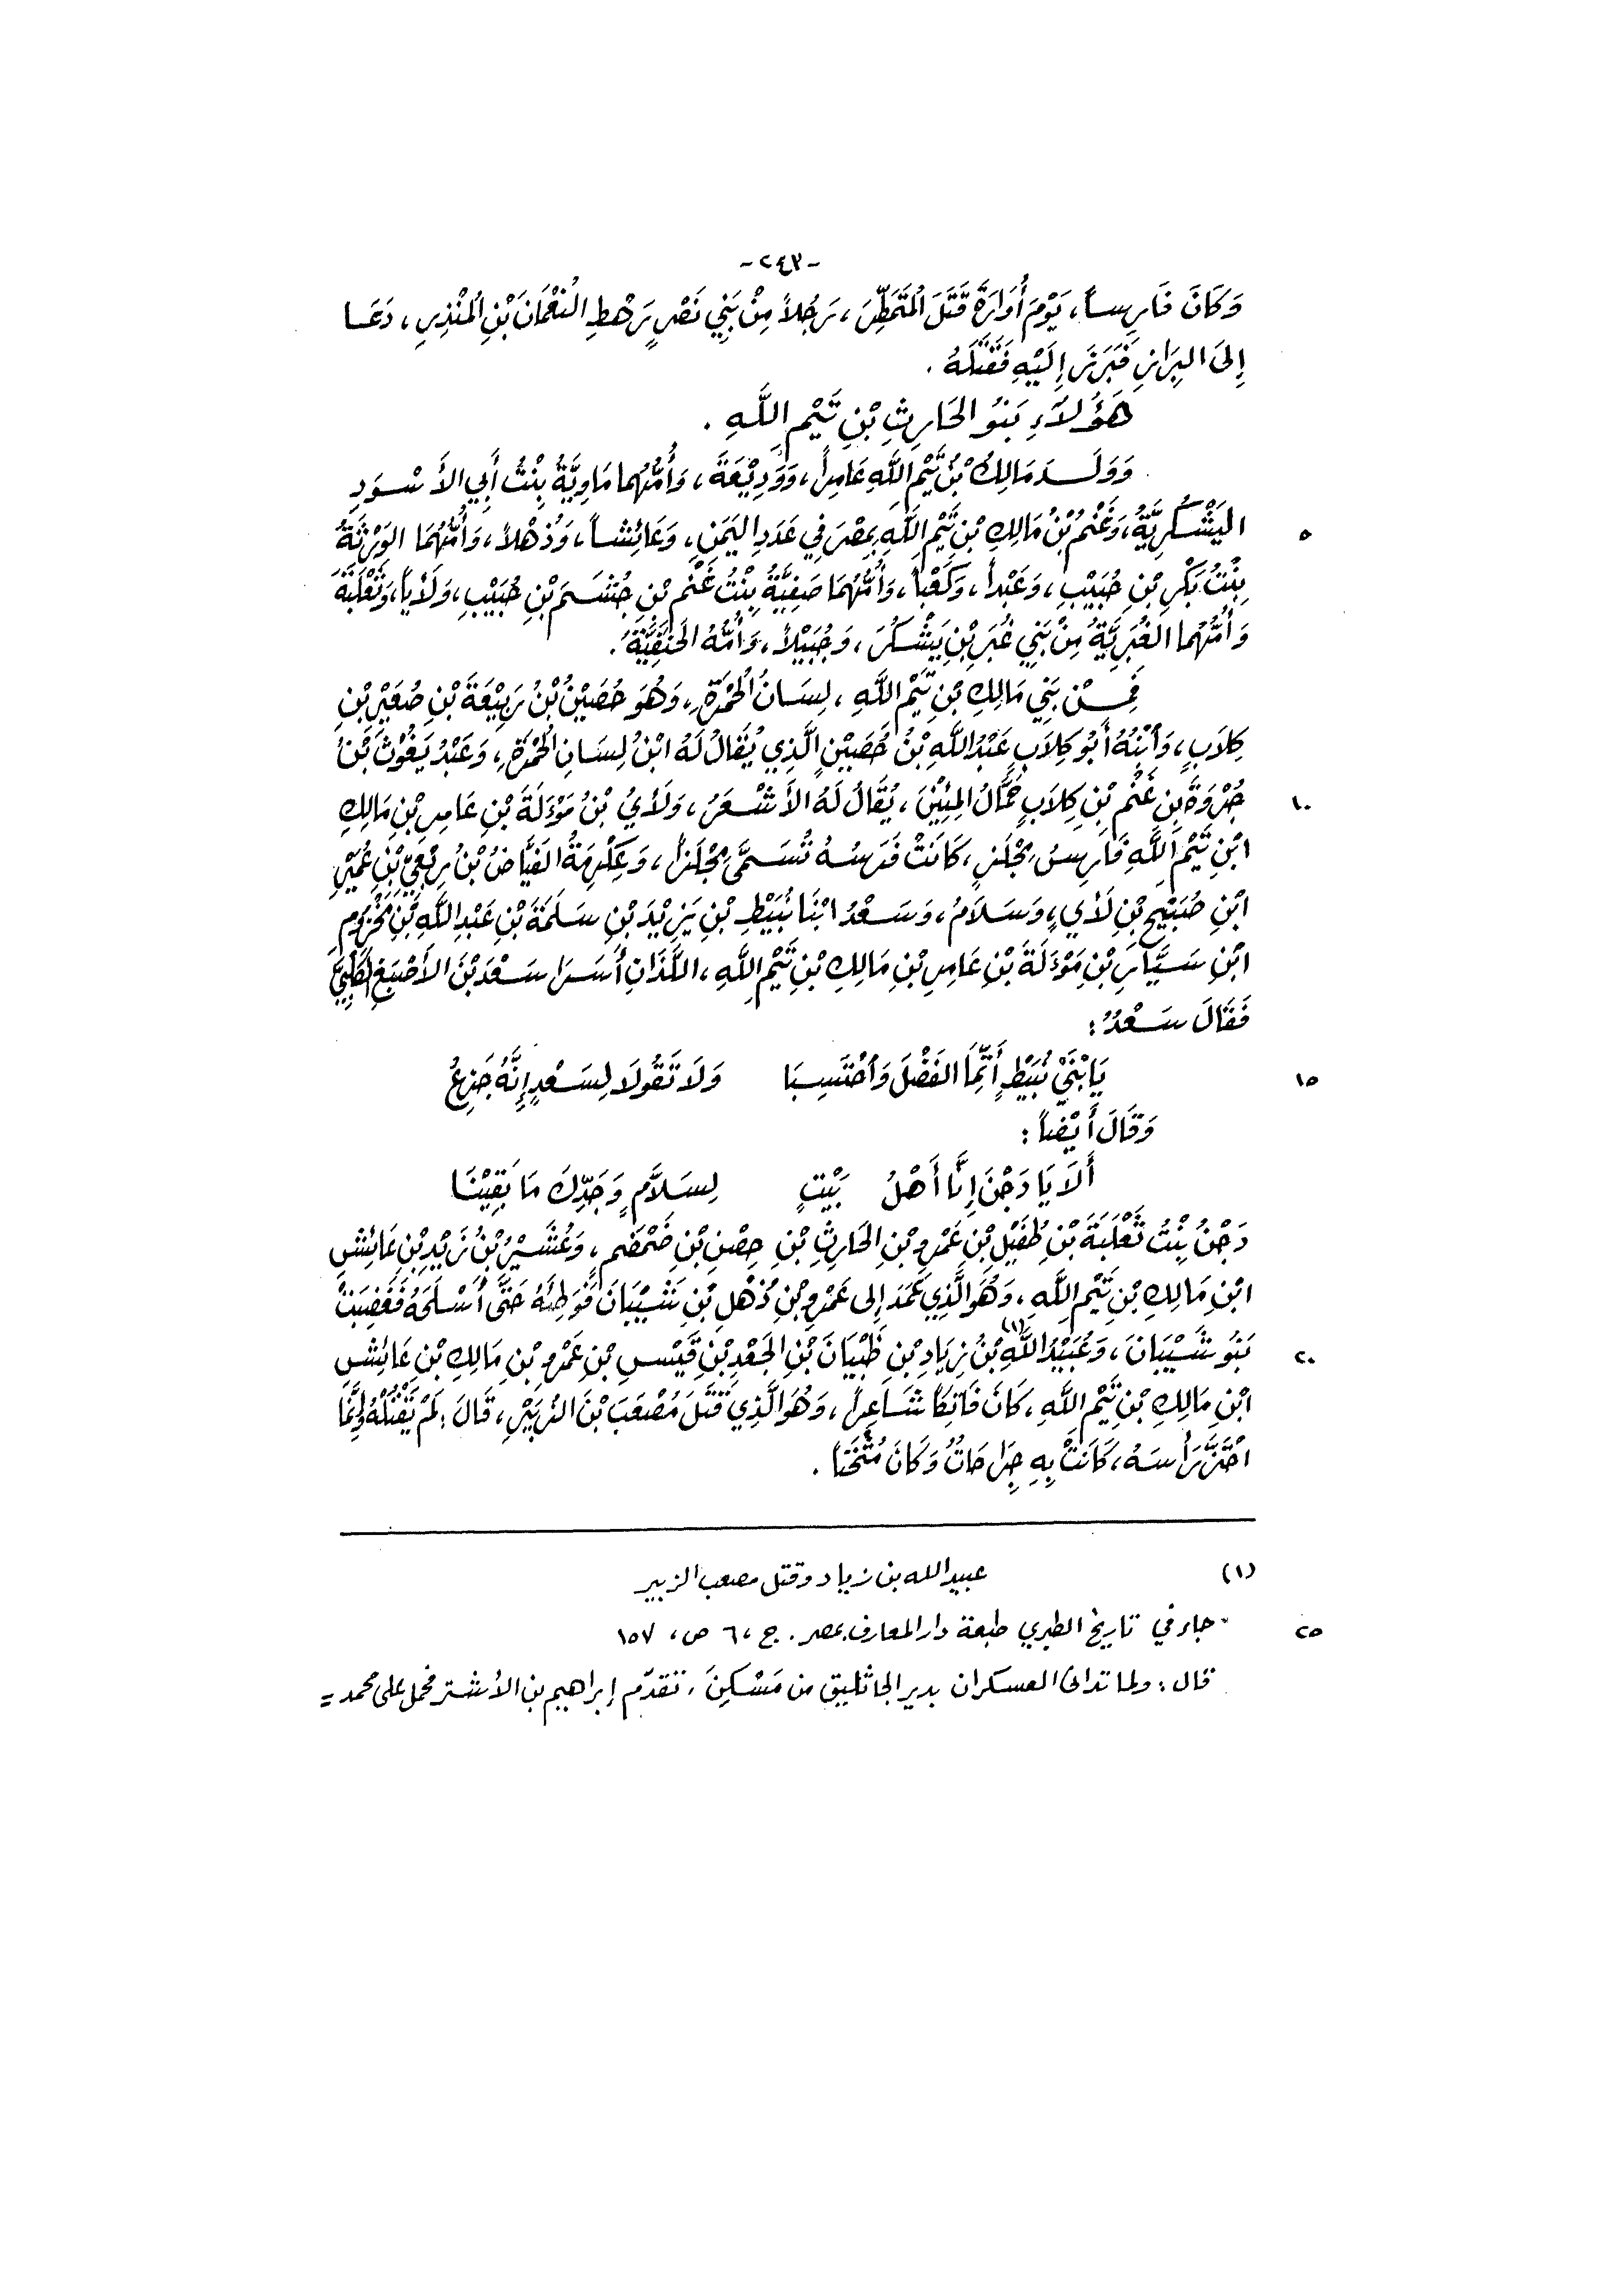 -٢٤٣-
وَكَانَ فَارِساً، يَوْمَ أُوَارَةَ قَتَلَ المُتَمَطِّرَ، رَجُلاً مِنْ بَنِي نَصْرٍ رَهْطِ النُعْمَانَ بْنِ المُنْذِرِ، دَعَا
إِلىَ البِرَازِ فَبَرَزَ إِلَيْهِ فَقَتَلَهُ .
هَؤُلاَءِ بَنُو الحَارِثِ بْنِ تَيْمِ اللَّهِ .
وَوَلَدَ مَالِكُ بْنُ تَيْمِ اللَّهِ عَامِراً، وَوَدِيْعَةَ، وَأُمُّهُما مَاوِيَّةُ بِنْتُ أَبِي الأَسْوَدِ
٥ اليَشْكُرِيَّةُ، وَغَنْمُ بْنُ مَالِكِ بْنِ تَيْمِ اللَّهِ بِمِصْرَ فِي عَدَدِ اليَمَنِ، وَعَائِشاً، وَذُهْلاً، وَأُمُّهُمَا الوَرْثَةُ
بِنْتُ بَكْرِ بْنِ حُبَيْبٍ، وَعَبْداً، وَكَعْباً، وَأُمُّهُمَا صَفِيَّةُ بِنْتُ غَنْمِ بْنِ جُشَمَ بْنِ حُبَيْبٍ، وَلَأْياً، وَثَعْلَبَةَ
وَأُمُّهُما الغُبَرِيَّةُ مِنْ بَنِي غُبَرِ بْنِ يَشْكُرَ، وَجُبَيْلاً، وَأُمُّهُ الحَنَفِيَّةُ.
فَمِنْ بَنِي مَالِكِ بْنِ تَيْمِ اللَّهِ، لِسَانُ الحُمَّرَةِ، وَهُوَ حُصَيْنُ بْنُ رَبِيْعَةَ بْنِ صُعَيْرِ بْنِ
كِلاَبٍ، وَابْنُهُ أَبُو كِلاَبٍ عَبْدُ اللَّهِ بْنُ حُصَيْنٍ الَّذِي يُقَالُ لَهُ ابْنُ لِسَانِ الحُمَّرَةِ، وَعَبْدُ يَغُوْثَ بْنُ
١٠ جُرْوَةَ بْنِ غَنْمِ بْنِ كِلاَبٍ حَمَّالُ المِئِيْنَ، يُقَالُ لَهُ الأَشْعَرُ، وَلَأْيُ بْنُ مَوْءَلَةَ بْنِ عَامِرِ بْنِ مَالِكِ
ابْنِ تَيْمِ اللَّهِ فَارِسُ مِجْلَزٍ، كَانَتْ فَرَسُهُ تُسَمَّى مِجْلَزاً، وَعِكْرِمَةُ الفَيَّاضُ بْنُ رِبْعِيِّ بْنِ عُمَيْرِ
ابْنِ صُبَيْحِ بْنِ لَأْيٍ، وَسَلاَمُ، وَسَعْدُ ابْنَا نُبَيْطِ بْنِ يَزِيْدَ بْنِ سَلَمَةَ بْنِ عَبْدِ اللَّهِ بْنِ مَخْزُومِ
ابْنِ سَيَّارِ بْنِ مَوْءَلَةَ بْنِ عَامِرِ بْنِ مَالِكِ بْنِ تَيْمِ اللَّهِ، اللَّذَانِ أَسَرَا سَعْدَ بْنَ الأَصْبَغِ الكَلْبِيَّ
فَقَالَ سَعْدٌ:
١٥ يَا بْنَيْ نُبَيْطٍ أَتِمَّا الفَضْلَ وَاحْتَسِبَا وَلَا تَقُولَا لِسَعْدٍ إِنَّهُ جَزِعُ
وَقَالَ أَيْضاً:
أَلَا يَا دَجْنَ إِنَّا أَهْلُ بَيْتٍ لِسَلاَّمٍ وَجَدِّكَ مَا بَقِيْنَا
دَجْنُ بِنْتُ ثَعْلَبَةَ بْنِ طُفَيْلِ بْنِ عَمْرِو بْنِ الحَارِثِ بْنِ حِصْنِ بْنِ ضَمْضَمٍ، وَعُشَيْرُ بْنُ زَيْدِ بْنِ عَائِشِ
ابْنِ مَالِكِ بْنِ تَيْمِ اللَّهِ، وَهُوَ الَّذِي عَمَدَ إِلى عَمْرِو بْنِ ذُهْلِ بْنِ شَيْبَانَ فَوَطِئَهُ حَتَّى أَسْلَحَهُ فَغَضِبَتْ
٢٠ بَنُو شَيْبَانَ، وَعُبَيْدُ اللَّهِ(١) بْنُ زِيَادِ بْنِ ظَبْيَانَ بْنِ الجَعْدِ بْنِ قَيْسِ بْنِ عَمْرِو بْنِ مَالِكِ بْنِ عَائِشِ
ابْنِ مَالِكِ بْنِ تَيْمِ اللَّهِ، كَانَ فَاتِكاً شَاعِراً، وَهُوَ الَّذِي قَتَلَ مُصْعَبَ بْنَ الزُبَيْرِ، قَالَ: لَمْ يَقْتُلْهُ وَإِنَّمَا
احْتَزَّ رَأْسَهُ، كَانَتْ بِهِ جِرَاحَاتٌ وَكَانَ مُثْخَناً.
(١) عبيد الله بن زياد وقتل مصعب الزبير
٢٥ - جاء في تاريخ الطبري طبعة دار المعارف بمصر. ج، ٦ ص، ١٥٧
قال: ولما تدانى العسكران بدير الجاثليق من مَسْكِنَ، تقدّم إبراهيم بن الأشتر فحمل على محمد =